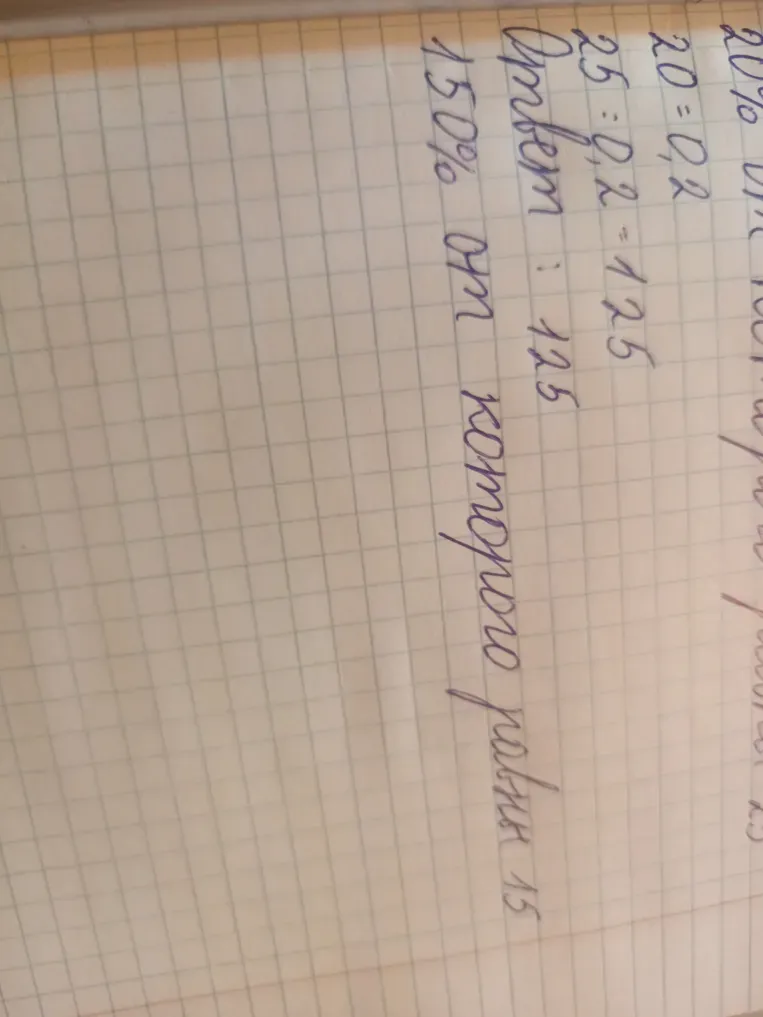 20% от которого равны 25
20 = 0,2
25 : 0,2 = 125
Ответ : 125
150% от которого равны 15